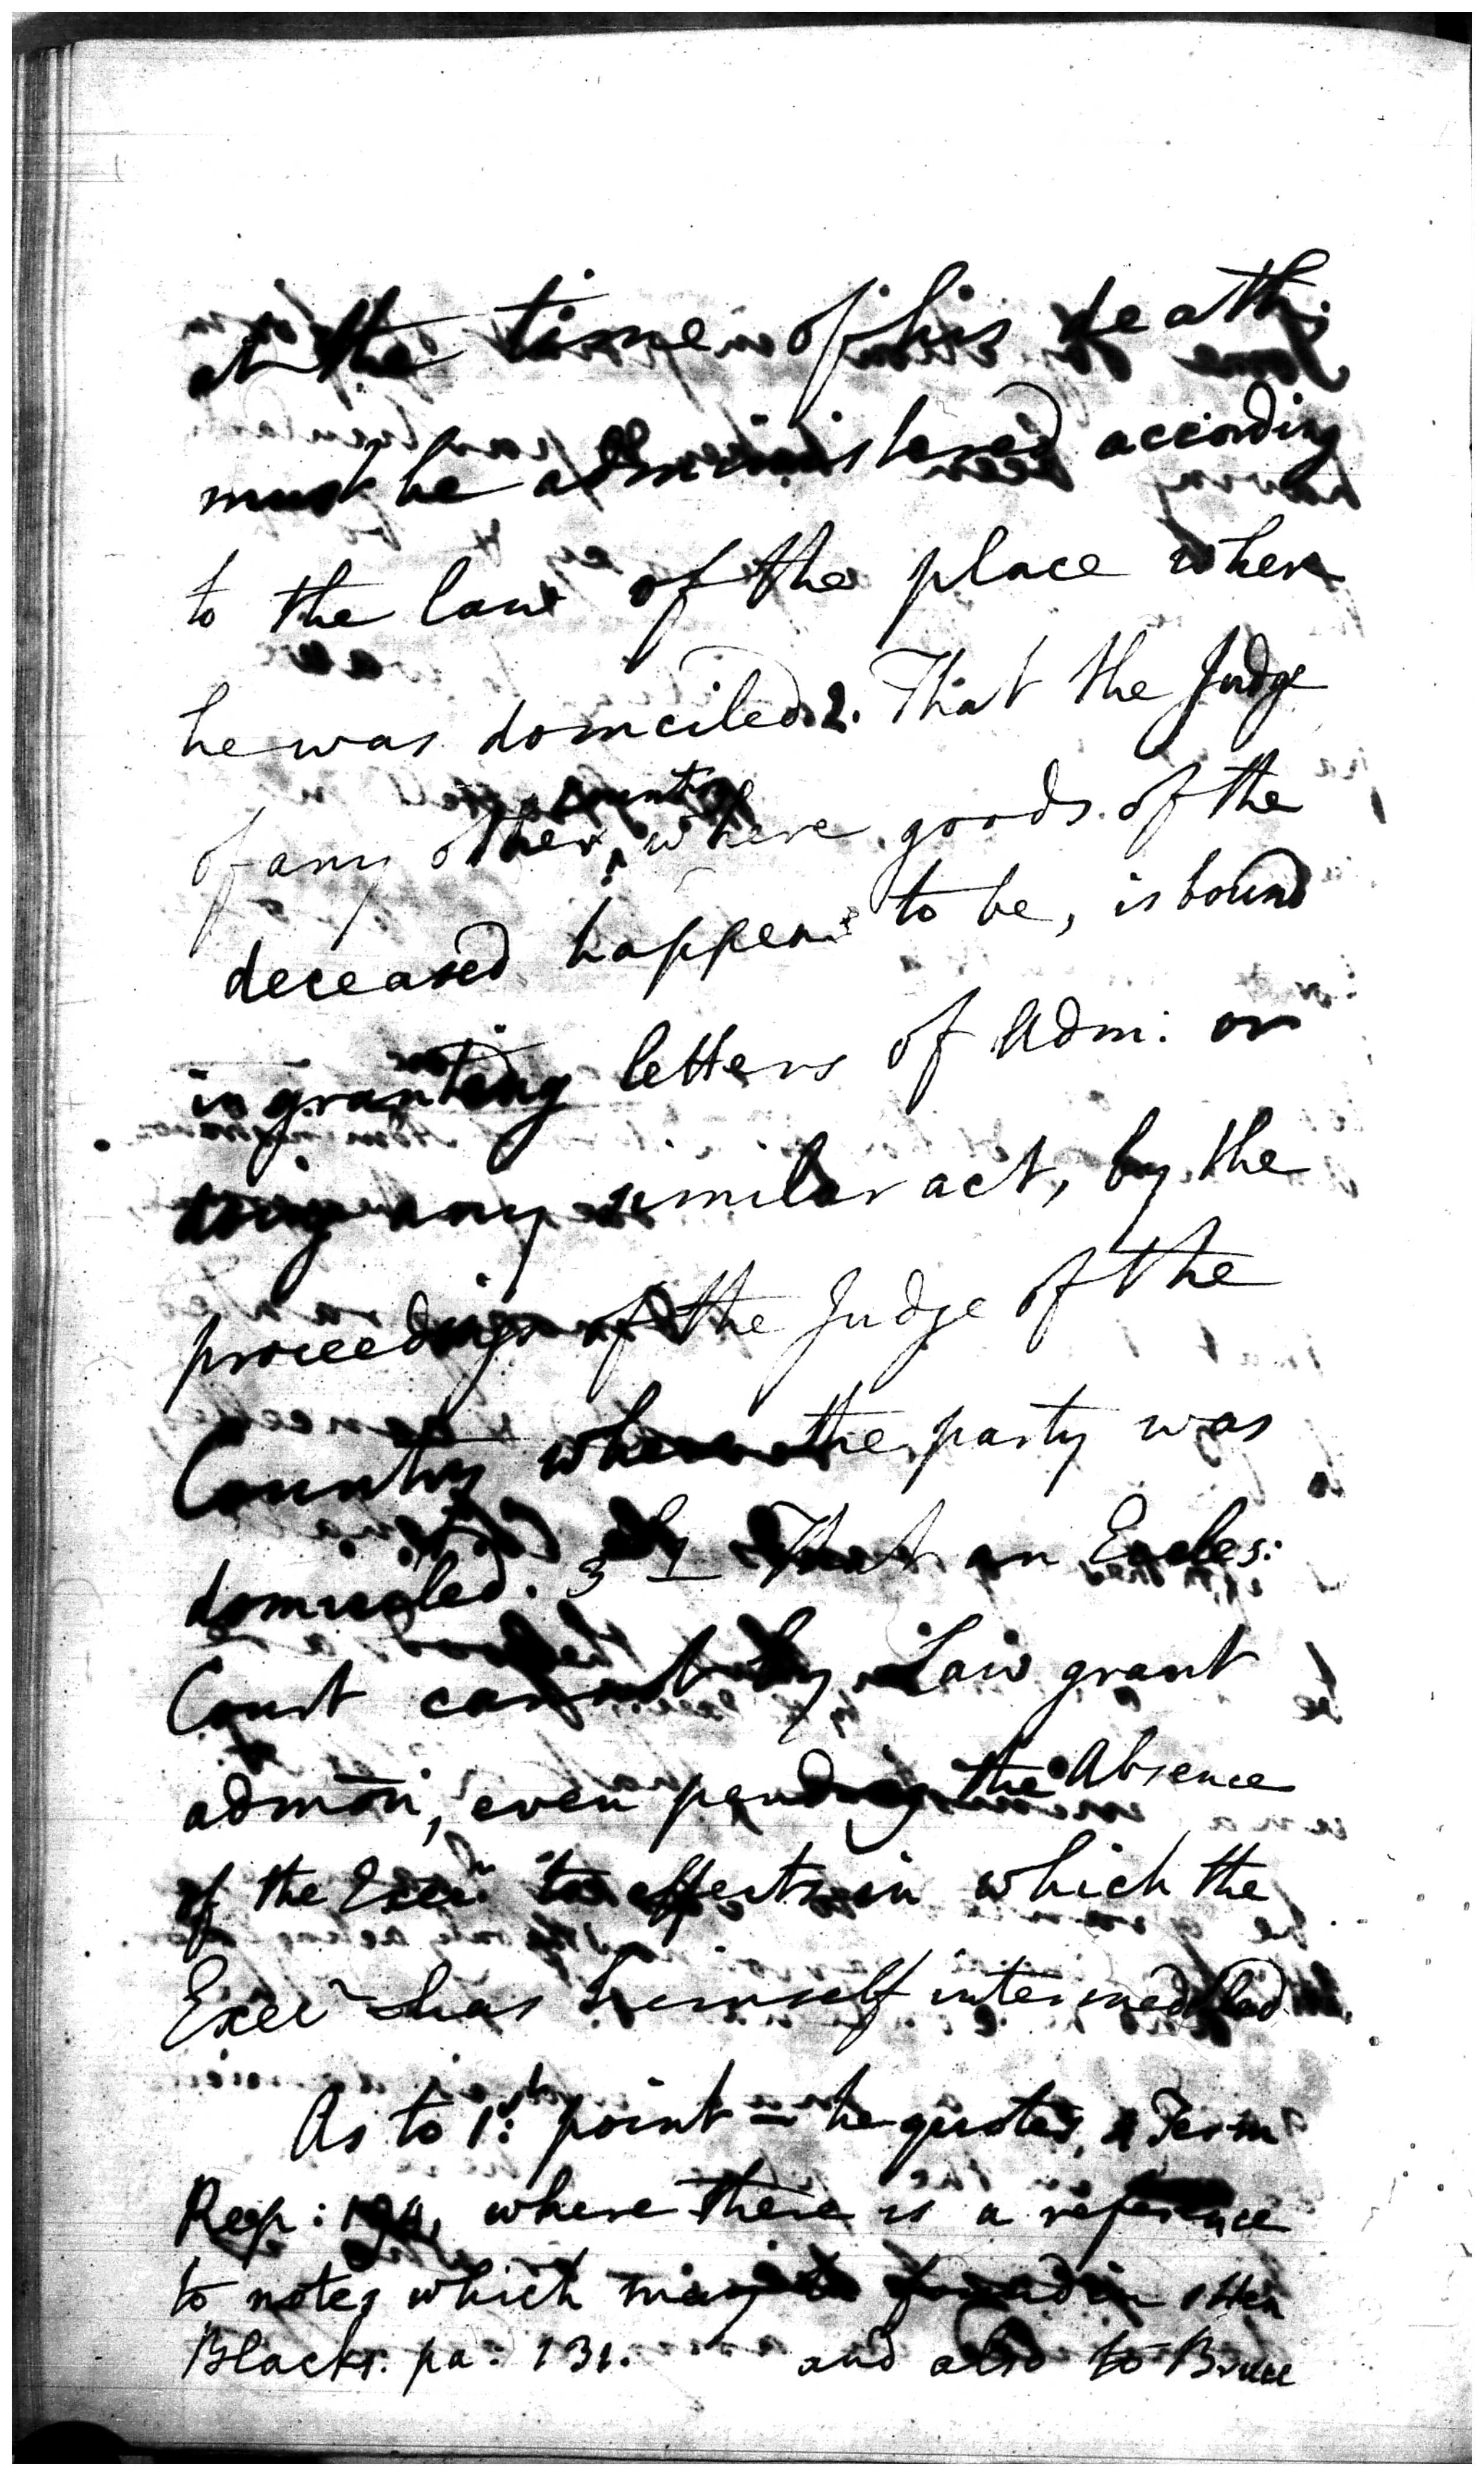 at the time of his death.
must be administered according
to the law of the place where
he was domciled. 2. That the Judge
of any other country where goods of the
deceased happens to be, is bound
in granting letters of Adm: or
doing any similar act, by the
proceedings of the Judge of the
Country where the party was
domiciled. 3dly That an Eccles:
Court cannot by Law grant
admōn, even pending the Absence
of the Execr. to effects in which the
Execr has himself intermeddled
As to 1st point – he quotes, 4 Term
Rep: where there is a reference
to notes which may be found in 1 Hen
Blacks. pa: 131. and also to Bruce